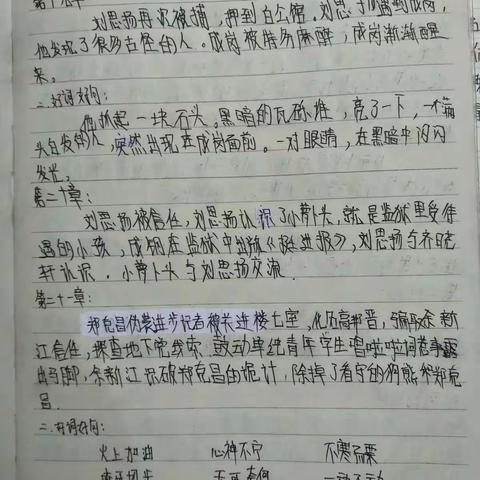 第十九章
刘思扬再次被捕，押到白公馆。刘思扬遇到成岗，
他发现了很多古怪的人。成岗被特务麻醉，成岗渐渐醒
来。
二、好词好句：
他抓起一块石头。黑暗的瓦砾堆，亮了一下，一个满
头白发的人，突然出现在成岗面前。一对眼睛，在黑暗中闪闪
发光。
第二十章：
刘思扬被信任，刘思扬认识了小萝卜头，就是监狱里受待
遇的小孩，成岗在监狱中出版《挺进报》，刘思扬与齐晓
轩认识。小萝卜头与刘思扬交流.
第二十一章：
郑克昌伪装进步记者被关进楼七室，化名高邦晋，骗取余新
江信任，探查地下党线索 鼓动单纯青年学生唱啦啦词卷露
出马脚，余新江识破郑克昌的诡计，除掉了看守的狗熊和郑克
昌.
二.好词好句：
火上加油 心神不宁 不寒而栗
无可奈何 一动不动